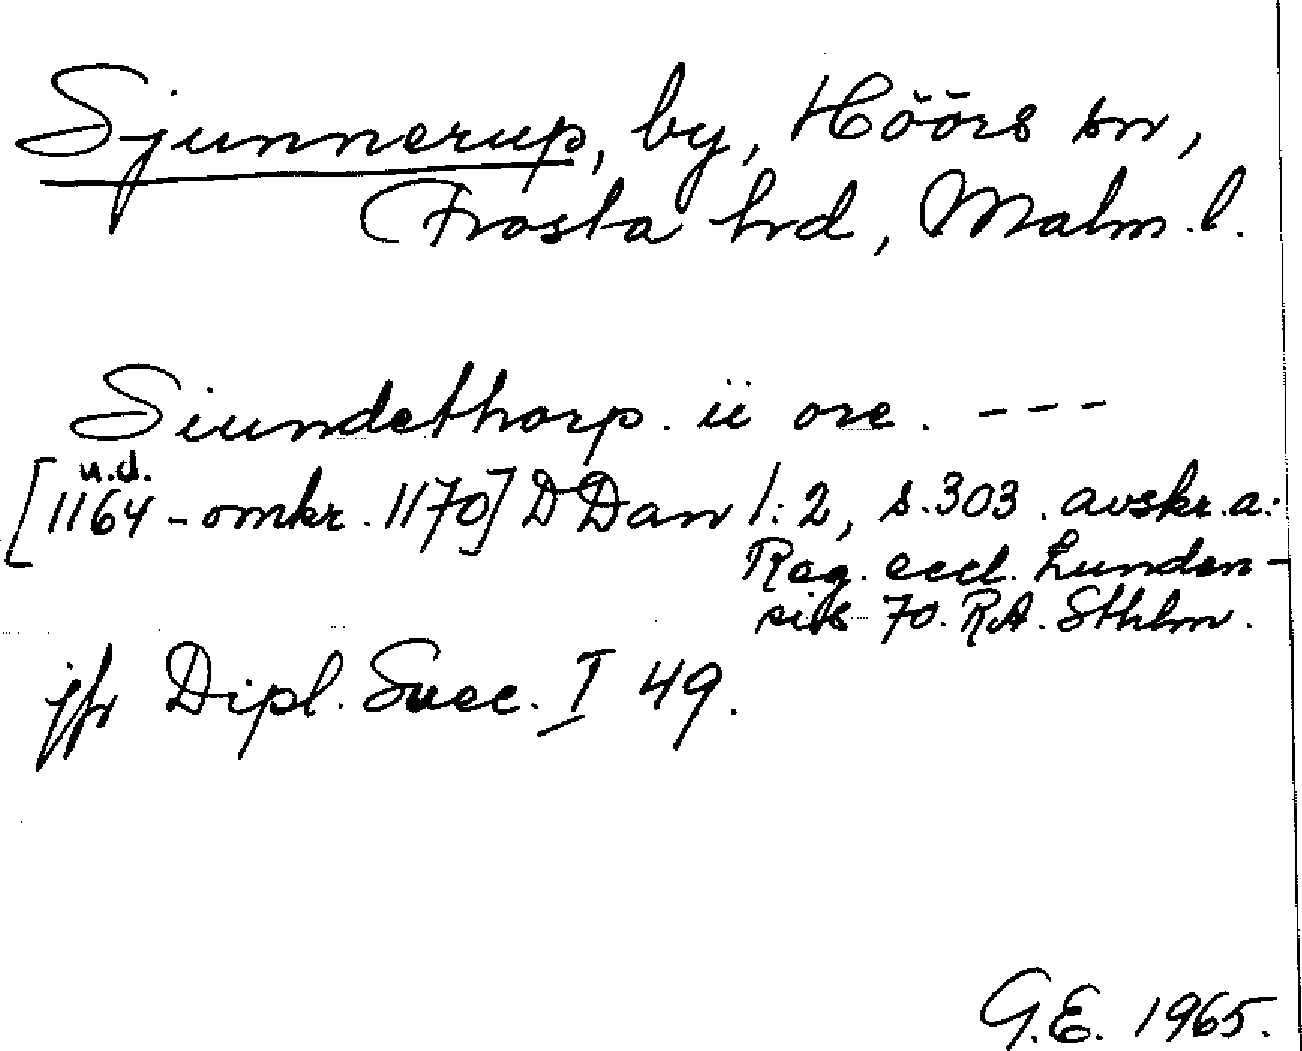 Sjunnerup, by, Höörs sn,
Frosta hrd, Malm. l.
Siundethorp. ii ore. ---
u.d.
[1164 - omkr. 1170] DDan 1:2, s. 303. avskr. a:
Reg. eccl. Lunden-
sis 70. RA. Sthlm.
jfr Dipl. Suec. I 49.
G.E. 1965.